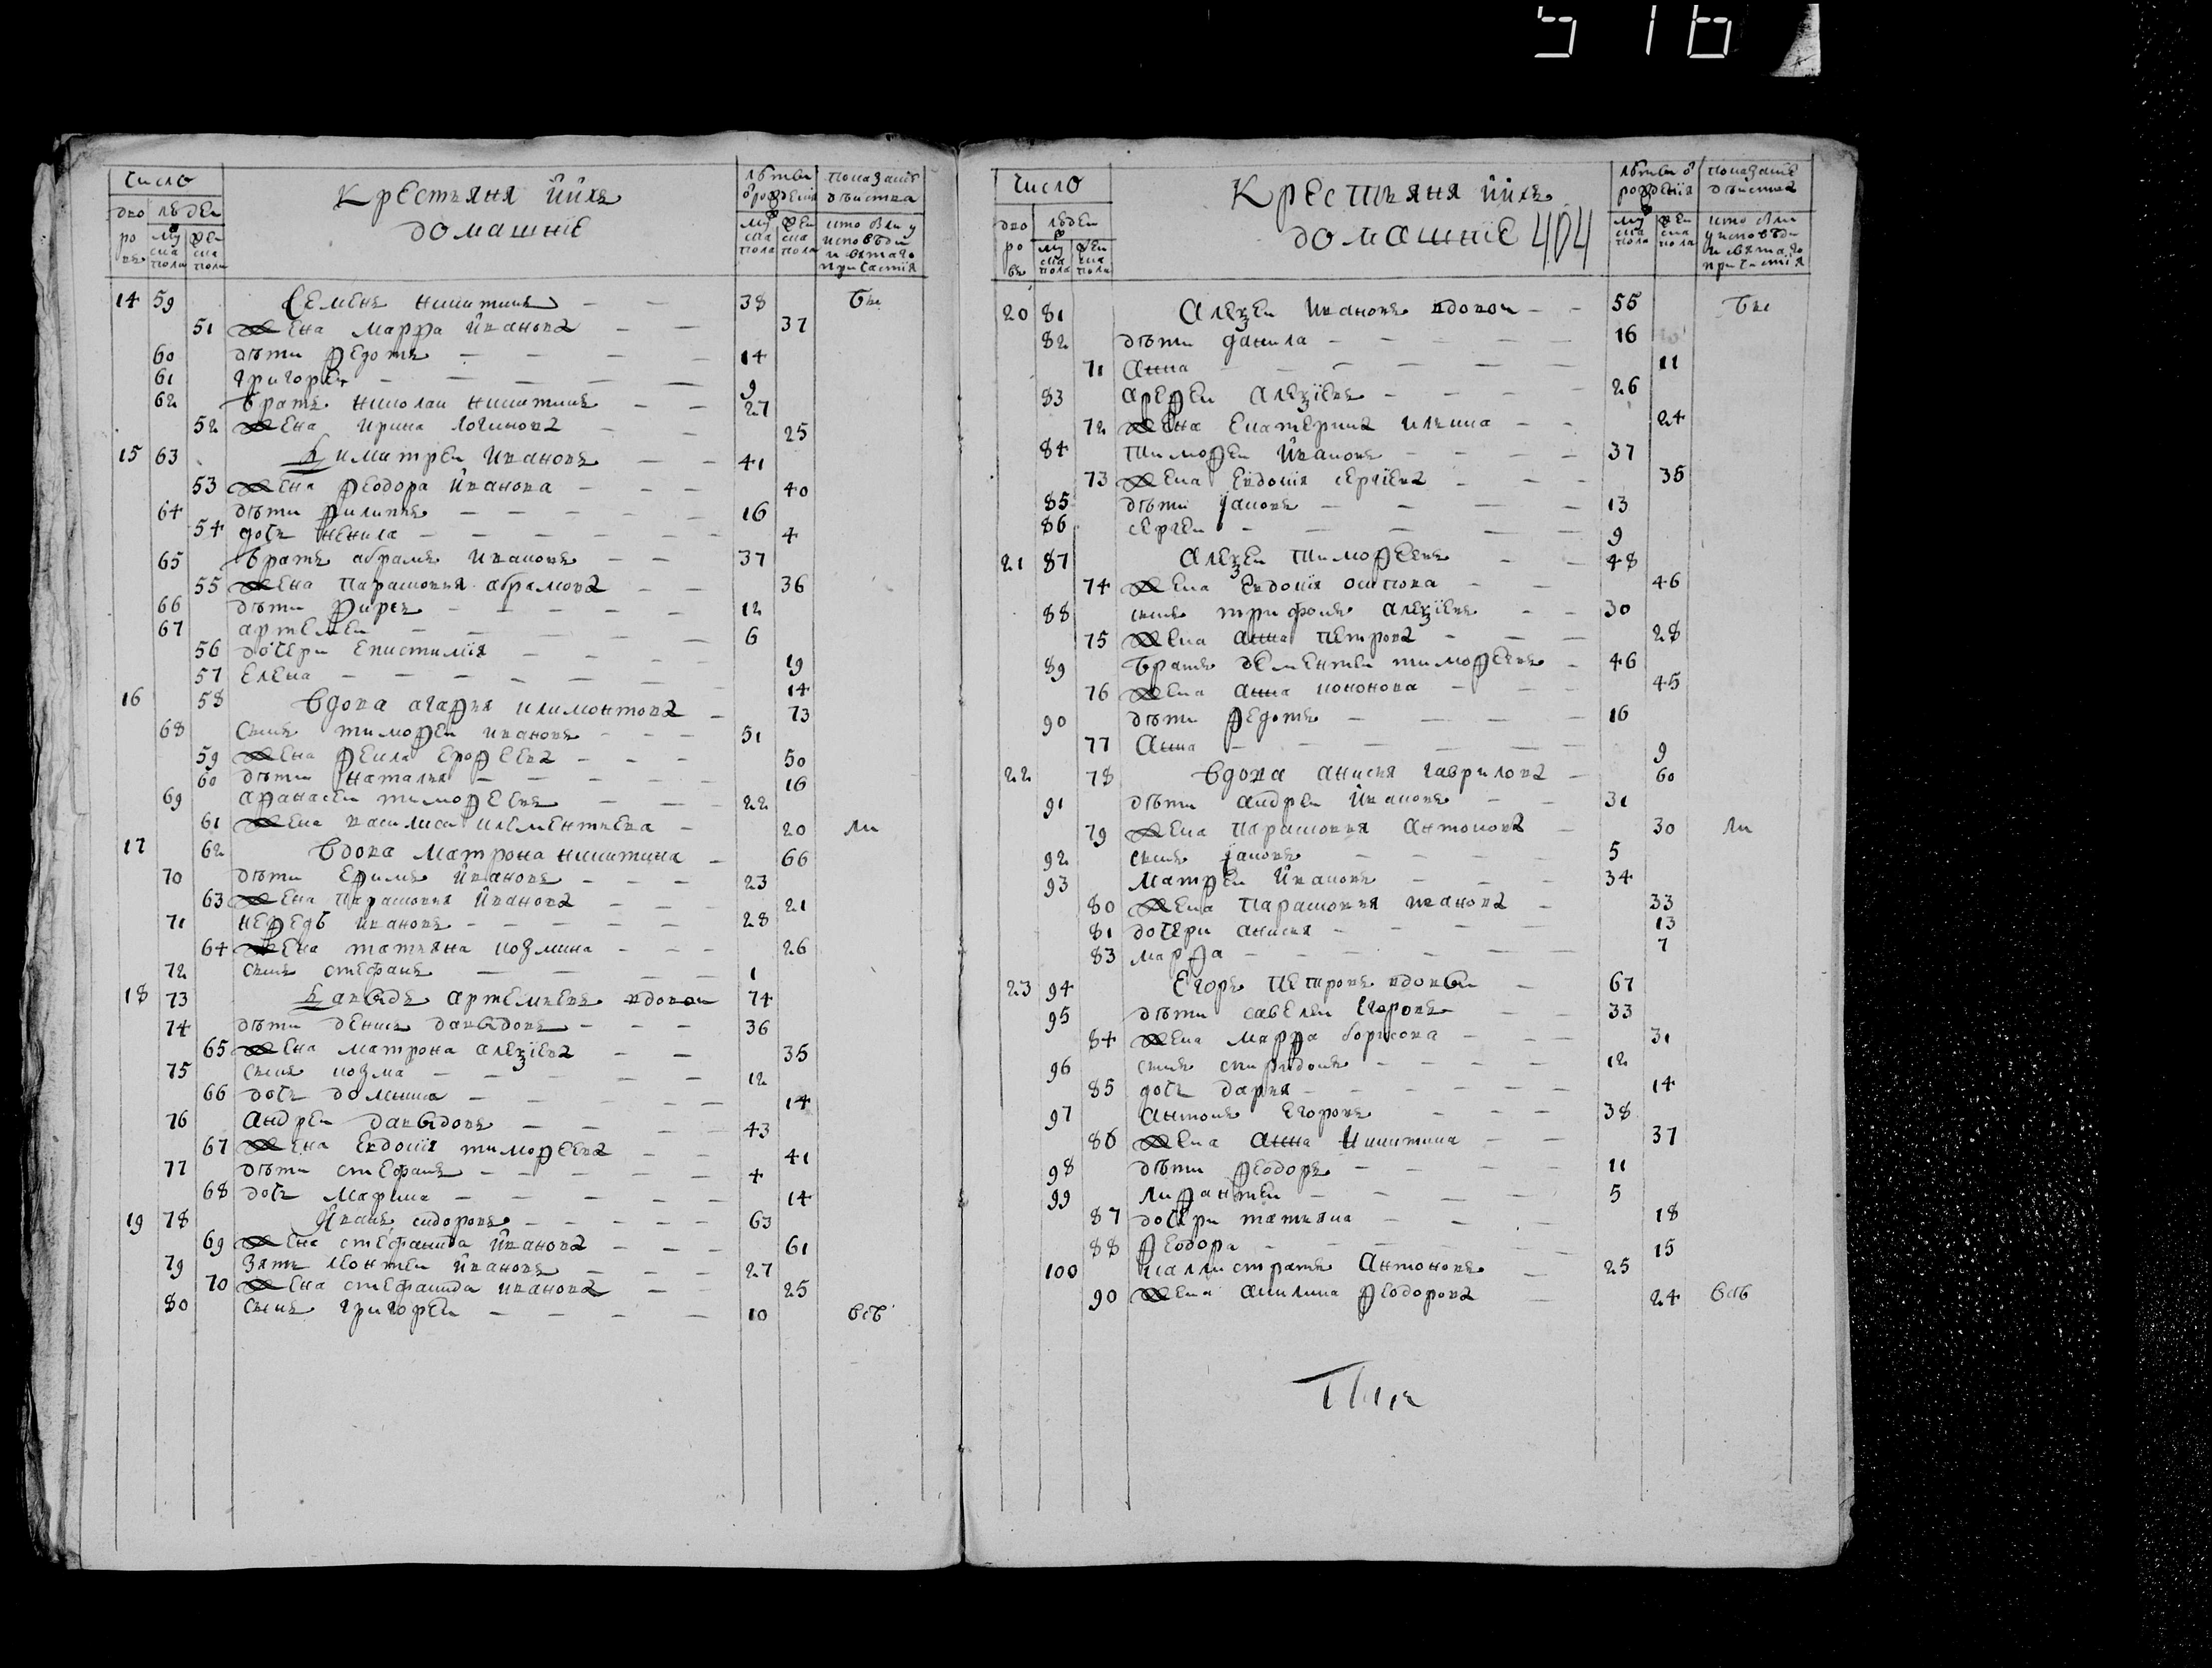 516
число
дворовъ
людеи
муска пола
женска пола
Крестьяня и ихъ
домашніе
лѣтъ от рождения
муска пола
женска пола
показание двиства
кто былъ у исповѣди и святаго причастія
14 59 Семенъ никитинъ — — 38 бы
51 жена марфа иванова — — 37
60 дѣти федотъ — — 14
61 григореи — — 9
62 братъ николаи никитинъ — — 27
52 жена ирина логинова — — 25
15 63 Димитреи ивановъ — — 41
53 жена феодора иванова — — 40
64 дѣти филипъ — — 16
54 дочь ненила — — 4
65 братъ абрамъ ивановъ — — 37
55 жена парасковья абрамова — — 36
66 дѣти фирсъ — — 12
67 артемеи — — 6
56 дочери епистимія — — 19
57 елена — — 14
16 58 вдова агафья илимонтова — 73
68 сынъ тимофеи ивановъ — — 51
59 жена фекла ерофеева — — 50
60 дѣти наталья — — 16
69 афанасеи тимофеевъ — — 22
61 жена василиса клементьева — 20 ли
17 62 вдова матрона никитина — 66
70 дѣти ефимъ ивановъ — — 23
63 жена парасковья иванова — — 21
71 нефедъ ивановъ — — 28
64 жена татьяна козмина — — 26
72 сынъ стефанъ — — 1
18 73 Давыдъ артемьевъ вдовои 74
74 дѣти денисъ давыдовъ — — 36
65 жена матрона алезіева — — 35
75 сынъ козма — — 12
66 дочь домника — — 14
76 андреи давыдовъ — — 43
67 жена евдокія тимофеева — — 41
77 дѣти стефанъ — — 4
68 дочь марина — — 14
19 78 Иванъ сидоровъ — — 63
69 жена стефанида иванова — — 61
79 зять леонтеи ивановъ — — 27
70 жена стефанида иванова — — 25
80 сынъ григореи — — 10 всѣ
число
дворовъ
людеи
муска пола
женска пола
Крестьяня и ихъ
домашніе 404
лѣтъ от рожденія
муска пола
женска пола
показание двиства
кто были у исповѣди и святаго причастія
20 81 Алезеи ивановъ вдовои — — 55 бы
82 дѣти данила — — 16
71 анна — — 11
83 арефеи алезіевъ — — 26
72 жена екатерина ильина — — 24
84 тимофеи ивановъ — — 37
73 жена евдокія сергіева — — 35
85 дѣти іаковъ — — 13
86 сергеи — — 9
21 87 Алезеи тимофеевъ — — 48
74 жена евдокія осипова — — 46
88 сынъ трифонъ алезіевъ — — 30
75 жена анна петрова — — 28
89 братъ дементеи тимофеевъ — 46
76 жена анна кононова — — 45
90 дѣти федотъ — — 16
77 анна — — 9
22 78 вдова анисья гаврилова — 60
91 дѣти андреи ивановъ — — 31
79 жена парасковья антонова — 30 ли
92 сынъ іаковъ — — 5
93 матфеи ивановъ — — 34
80 жена парасковья иванова — 33
81 дочери анисья — — 13
83 марфа — — 7
23 94 Егоръ петровъ вдовыи — 67
95 дѣти савелеи егоровъ — — 33
84 жена марфа борисова — — 31
96 сынъ спиридонъ — — 12
85 дочь дарья — — 14
97 антонъ егоровъ — — 38
86 жена анна никитина — — 37
98 дѣти феодоръ — — 11
99 лифантеи — — 5
87 дочери татьяна — — 18
88 феодора — — 15
100 каллистратъ антоновъ — 25
90 жена акилина феодорова — 24 всѣ